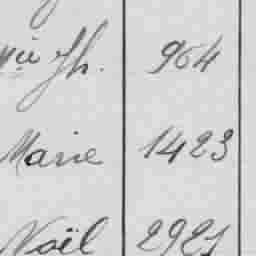 Mie Jh. 964
Marie 1423
Noël 2921